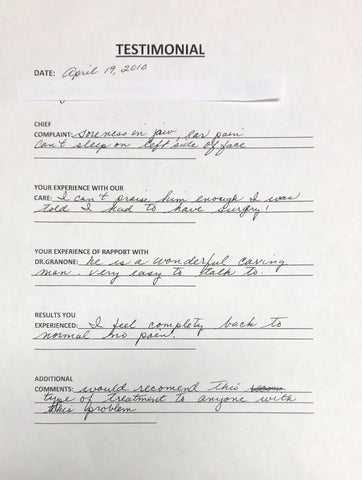 TESTIMONIAL
DATE: April 19, 2010
CHIEF
COMPLAINT: Soreness in jaw, ear pain
Can't sleep on left side of face
YOUR EXPERIENCE WITH OUR
CARE: I can't praise him enough I was
told I had to have surgery!
YOUR EXPERIENCE OF RAPPORT WITH
DR.GRANONE: he is a wonderful caring
man. very easy to talk to.
RESULTS YOU
EXPERIENCED: I feel complety back to
normal no pain.
ADDITIONAL
COMMENTS: would recomend this
type of treatment to anyone with
this problem